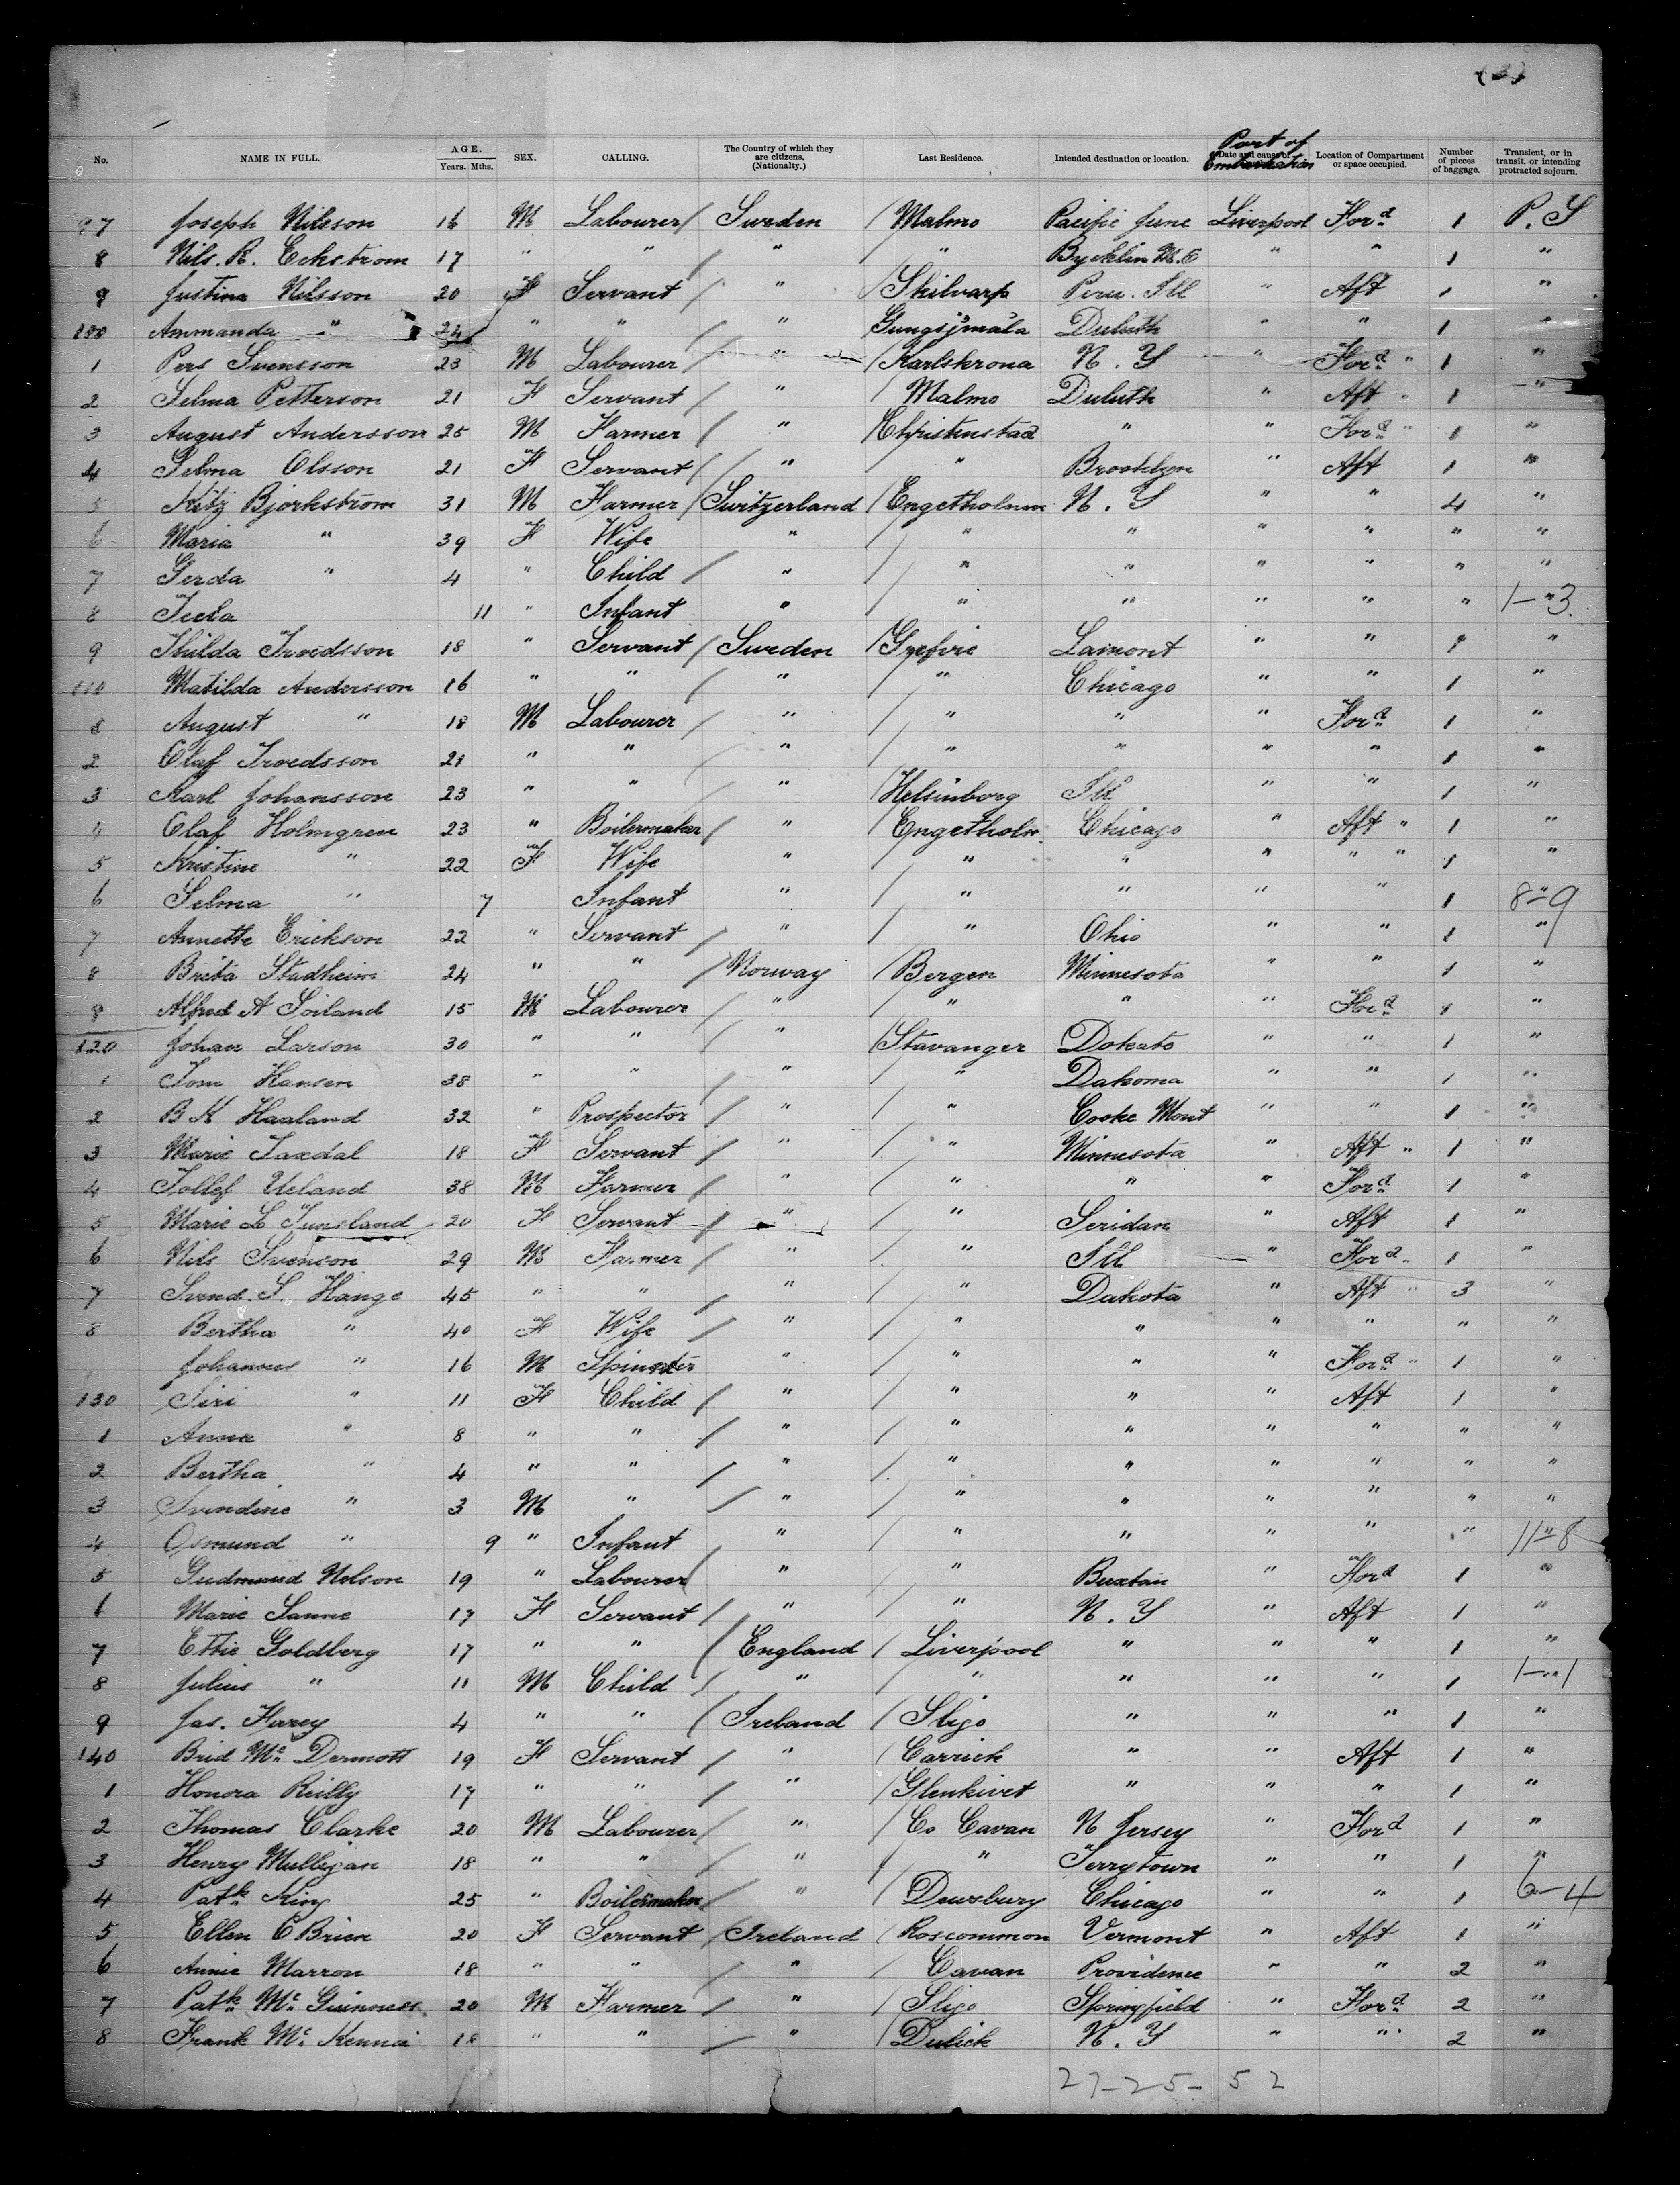 (3)
No. NAME IN FULL. AGE. Years. Mths. SEX. CALLING. The Country of which they are citizens. (Nationality.) Last Residence. Intended destination or location. Port of Embarkation Location of Compartment or space occupied. Number of pieces of baggage. Transient, or in transit, or intending protracted sojourn.
97 Joseph Nilsson 16 M Labourer / Sweden / Malmo Pacific June Liverpool Ford 1 P.S
8 Nils. R. Eckstrom 17 " " / " " " " 1 "
9 Justina Nilsson 20 F Servant / " / Skilvarp Peru. Ill " Aft 1 "
100 Ammanda " 24 " " / " Duluth " " 1 "
1 Pers Svensson 23 M Labourer / " / Karlskrona N.Y " Ford " 1 "
2 Selma Petterson 21 F Servant / " / Malmo Duluth " Aft " 1 "
3 August Andersson 25 M Farmer / " / Christinstad " " Ford " 1 "
4 Selma Olsson 21 F Servant / " " Brooklyn " Aft 1 "
5 Fitz Bjorkstrom 31 M Farmer / Switzerland / Engetholmm N.Y " " 4 "
6 Maria " 39 F Wife " " " " " " "
7 Gerda " 4 " Child / " / " " " " " "
8 Tecla 11 " Infant " / " " " " " 1-"3
9 Hulda Troedsson 18 " Servant / Sweden / Grefvie Lamont " " 1 "
110 Matilda Andersson 16 " " / " / " Chicago " " 1 "
1 August " 18 M Labourer / " / " " " Ford 1 "
2 Olaf Troedsson 21 " " / " / " " " " 1 "
3 Karl Johansson 23 " " " / Helsinborg Ill " " 1 "
4 Olaf Holmgren 23 " Boilermaker / " / Engetholm Chicago " Aft " 1 "
5 Kristine " 22 F Wife " / " " " " " 1 "
6 Selma " 7 Infant " / " " " " 1 8-"9
7 Annette Erickson 22 " Servant / " / " Ohio " " 1 "
8 Brita Stadheim 24 " " / Norway / Bergen Minnesota " " 1 "
9 Alfred A Soiland 15 M Labourer / " / " " " Ford 1 "
120 Johan Larson 30 " " / " / Stavanger Dokato " " 1 "
1 Tom Hansen 38 " " / " / " Dakoma " " 1 "
2 B K Haaland 32 " Prospector / " / " Cooke Mont " " 1 "
3 Marie Taxdal 18 F Servant / " / " Minnesota " Aft " 1 "
4 Tollef Ueland 38 M Farmer / " / " " " Ford 1 "
5 Marie L Tunsland 20 F Servant / " / " Seridan " Aft 1 "
6 Nils Svenson 29 M Farmer / " / " Ill " Ford " 1 "
7 Svend. S. Hange 45 " " / " / " Dakota " Aft " 3 "
8 Bertha " 40 F Wife / " / " " " " " "
Johannes " 16 M Spinster " / " " " Ford " 1 "
130 Siri " 11 F Child / " / " " " Aft 1 "
1 Anna " 8 " " / " / " " " " " "
2 Bertha " 4 " " / " / " " " " " "
3 Svendine " 3 M " / " / " " " " " "
4 Osmund " 9 " Infant " / " " " " " 11-"8
5 Gudmund Nelson 19 " Labourer / " " Buxtan " Ford 1 "
6 Marie Sanne 17 F Servant / " / " N.Y " Aft 1 "
7 Ettie Goldberg 17 " " / England / Liverpool " " " 1 "
8 Julius " 11 M Child / " / " " " " 1 1-"1
9 Jas. Furey 4 " " / Ireland / Sligo " " " 1 "
140 Brid Mc Dermott 19 F Servant / " / Carrick " " Aft 1 "
1 Honora Reilly 17 " " / " / Glenkivet " " " 1 "
2 Thomas Clarke 20 M Labourer / " / Co Cavan N Jersey " Ford 1 "
3 Henry Mulligan 18 " " / " / " Terrytown " " 1 "
4 Patk King 25 " Boilermaker / " / Dewsbury Chicago " " 1 6-4
5 Ellen O Brien 20 F Servant / Ireland / Roscommon Vermont " Aft 1 "
6 Annie Marron 18 " " / " / Cavan Providence " " 2 "
7 Patk Mc Guinness 20 M Farmer / " / Sligo Springfield " Ford 2 "
8 Frank Mc Kenna 18 " " / " / Dulick N.Y " " 2 "
27-25-52